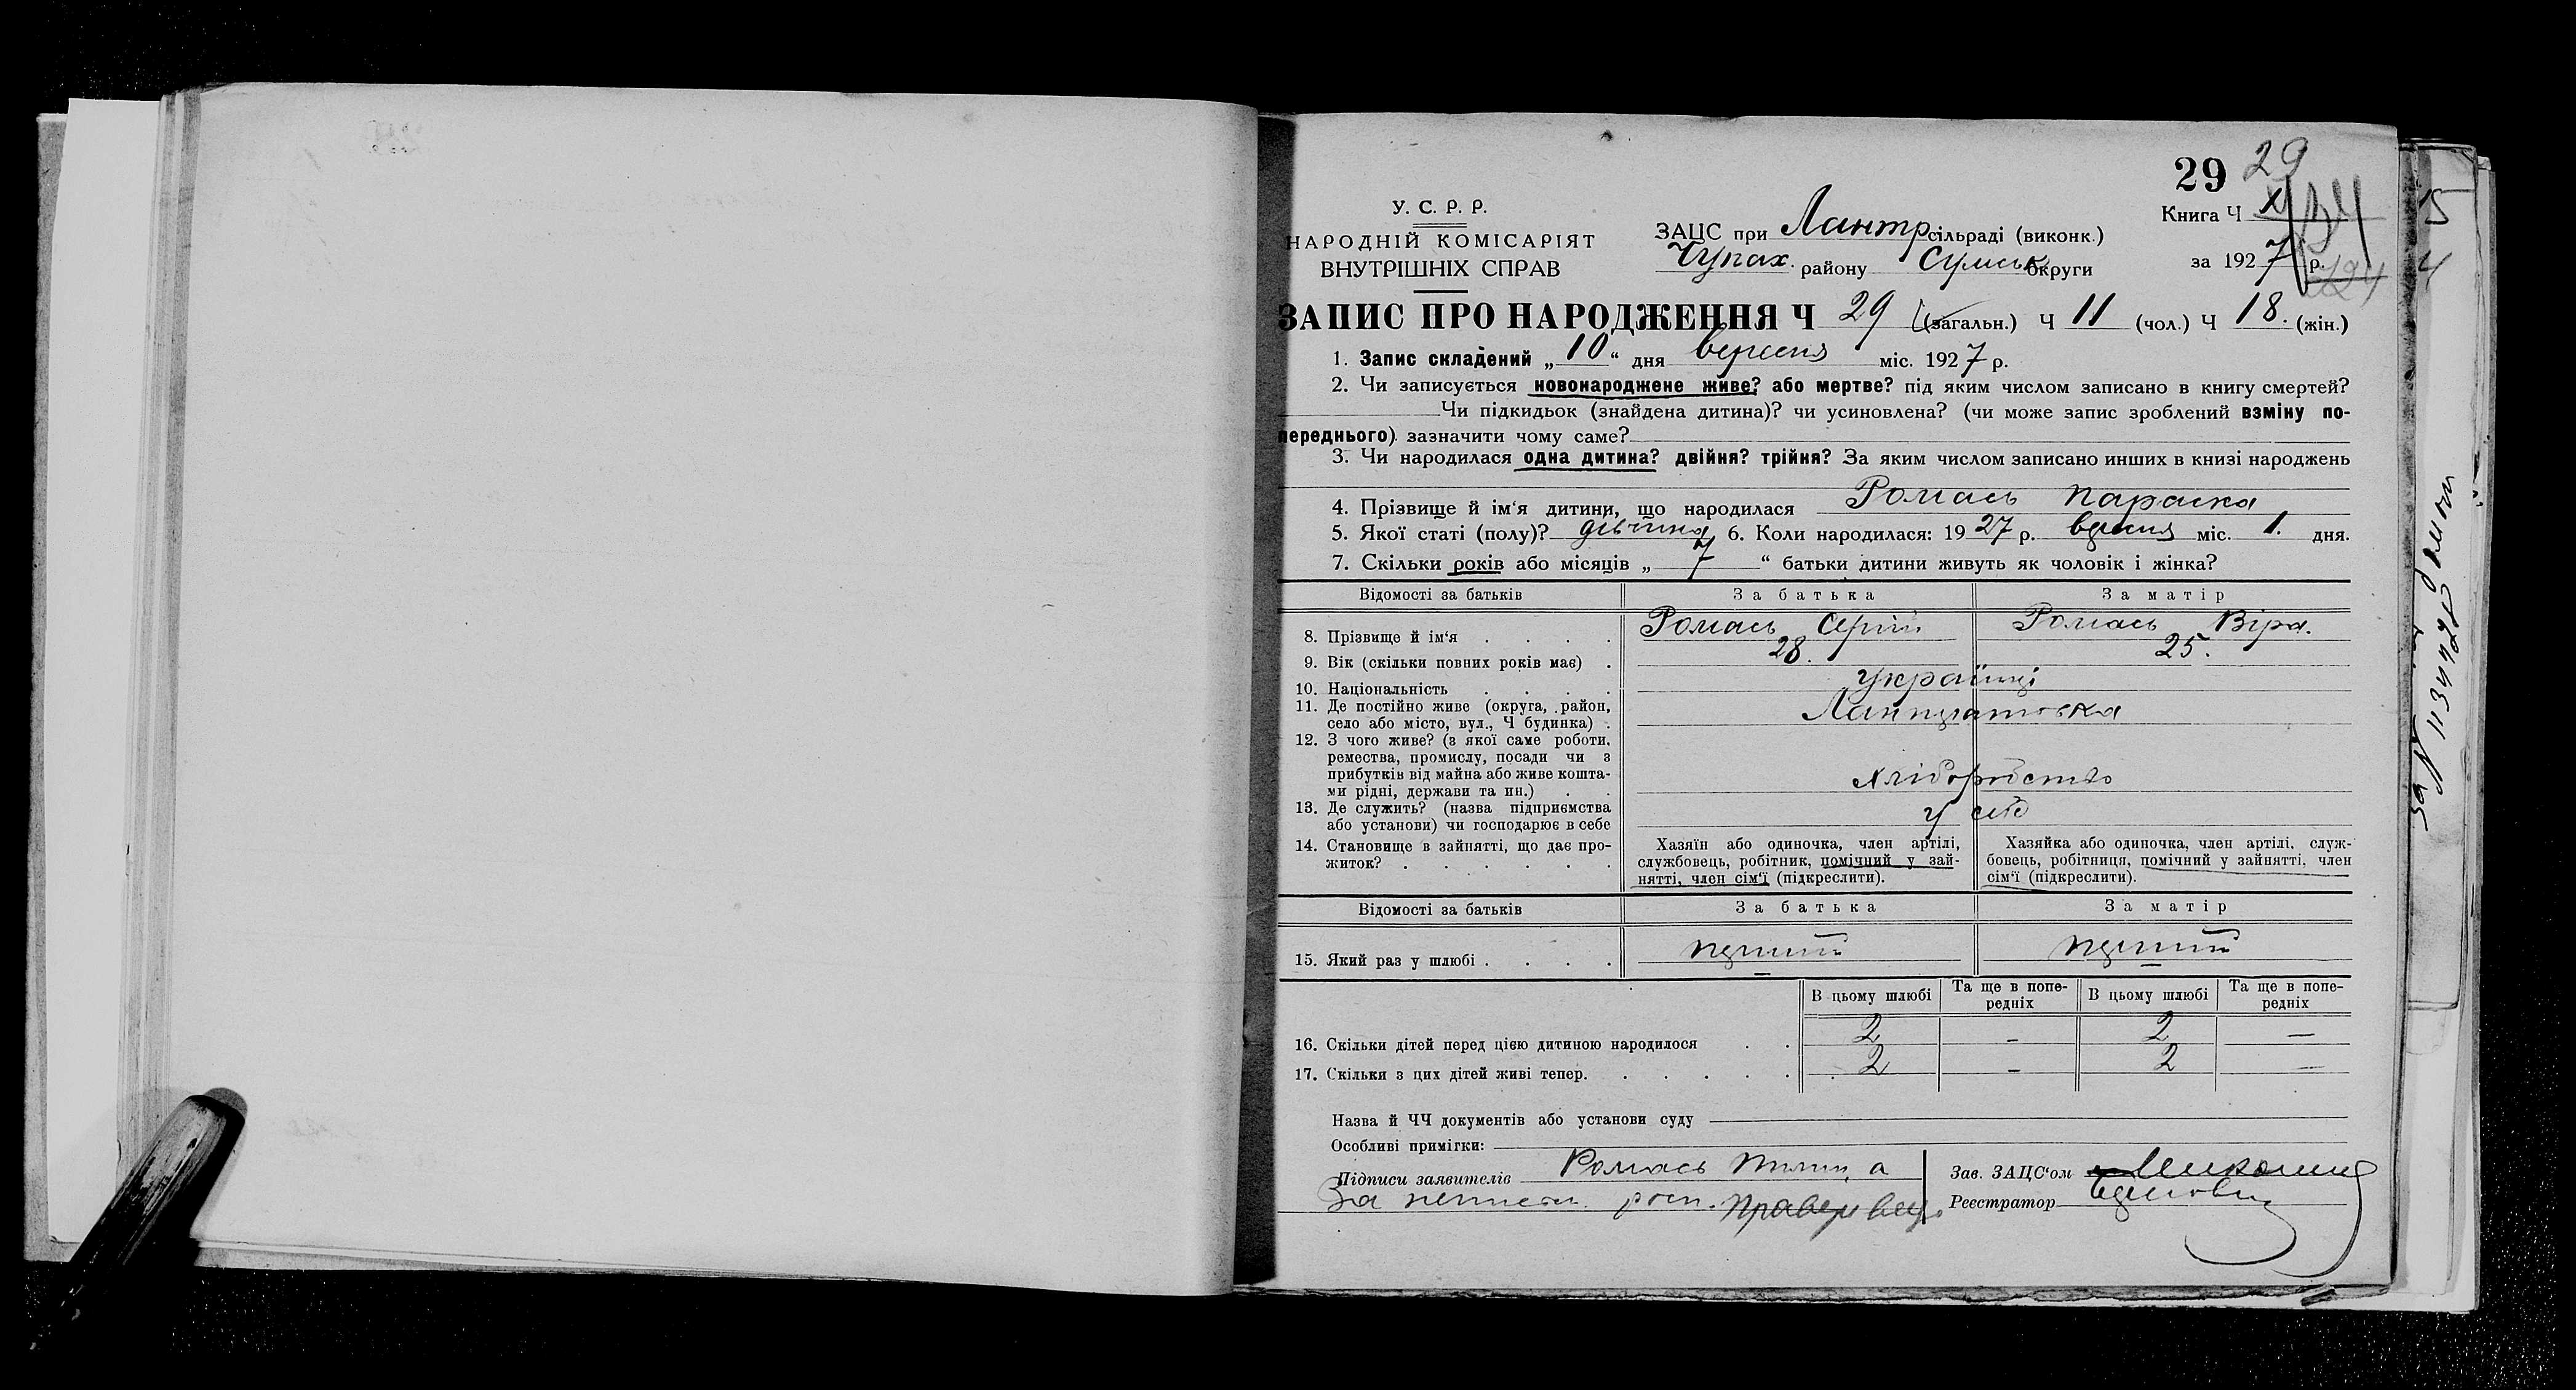 29 29
У. С. Р. Р.
НАРОДНІЙ КОМІСАРІЯТ
ВНУТРІШНІХ СПРАВ
ЗАЦС при Лантр сільраді (виконк.)
Чупах. району Сумськ округи
Книга Ч
за 1927 р.
ЗАПИС ПРО НАРОДЖЕННЯ Ч 29 (загальн.) Ч 11 (чол.) Ч 18. (жін.)
1. Запис складений „10“ дня вересня міс. 1927 р.
2. Чи записується новонароджене живе? або мертве? під яким числом записано в книгу смертей?
Чи підкидьок (знайдена дитина)? чи усиновлена? (чи може запис зроблений взміну по-
переднього) зазначити чому саме?
3. Чи народилася одна дитина? двійня? трійня? За яким числом записано инших в книзі народжень
4. Прізвище й ім‘я дитини, що народилася Ромась Параска
5. Якої статі (полу)? дівчина 6. Коли народилася: 1927 р. вересня міс. 1. дня.
7. Скільки років або місяців „ 7 “ батьки дитини живуть як чоловік і жінка?
Відомості за батьків За батька За матір
8. Прізвище й ім‘я Ромась Сергій Ромась Віра.
9. Вік (скільки повних років має) 28. 25.
10. Національність Українці
11. Де постійно живе (округа, район,
село або місто, вул., Ч будинка)
12. З чого живе? (з якої саме роботи,
ремества, промислу, посади чи з
прибутків від майна або живе кошта-
ми рідні, держави та ин.) хліборобство
13. Де служить? (назва підприємства
або установи) чи господарює в себе у себе
14. Становище в зайнятті, що дає про-
житок?
Хазяїн або одиночка, член артілі,
службовець, робітник, помічний у зай-
нятті, член сім‘ї (підкреслити).
Хазяйка або одиночка, член артілі, служ-
бовець, робітниця, помічний у зайнятті, член
сім‘ї (підкреслити).
Відомості за батьків За батька За матір
15. Який раз у шлюбі перший перший
В цьому шлюбі Та ще в попе-редніх В цьому шлюбі Та ще в попе-редніх
16. Скільки дітей перед цією дитиною народилося 2 – 2 –
17. Скільки з цих дітей живі тепер. 2 – 2 –
Назва й ЧЧ документів або установи суду
Особливі примітки:
Підписи заявителів Ромась
За неписм. розп.
Зав. ЗАЦС‘ом
Реєстратор
15
4